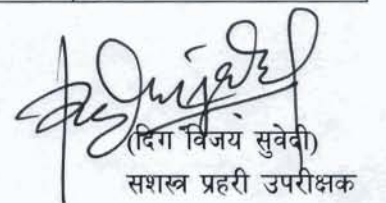 (दिग विजय सुवेदी)
सशस्त्र प्रहरी उपरीक्षक